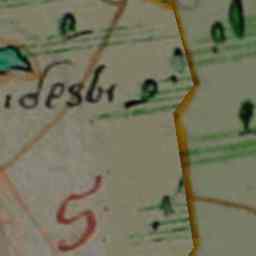 idesbr
5